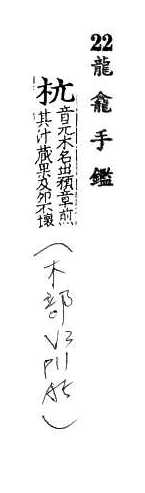 22 龍龕手鑑
杬
音元木名出豫章煎
其汁蔵果及夘不壞
(木部 V3 P11 A5)